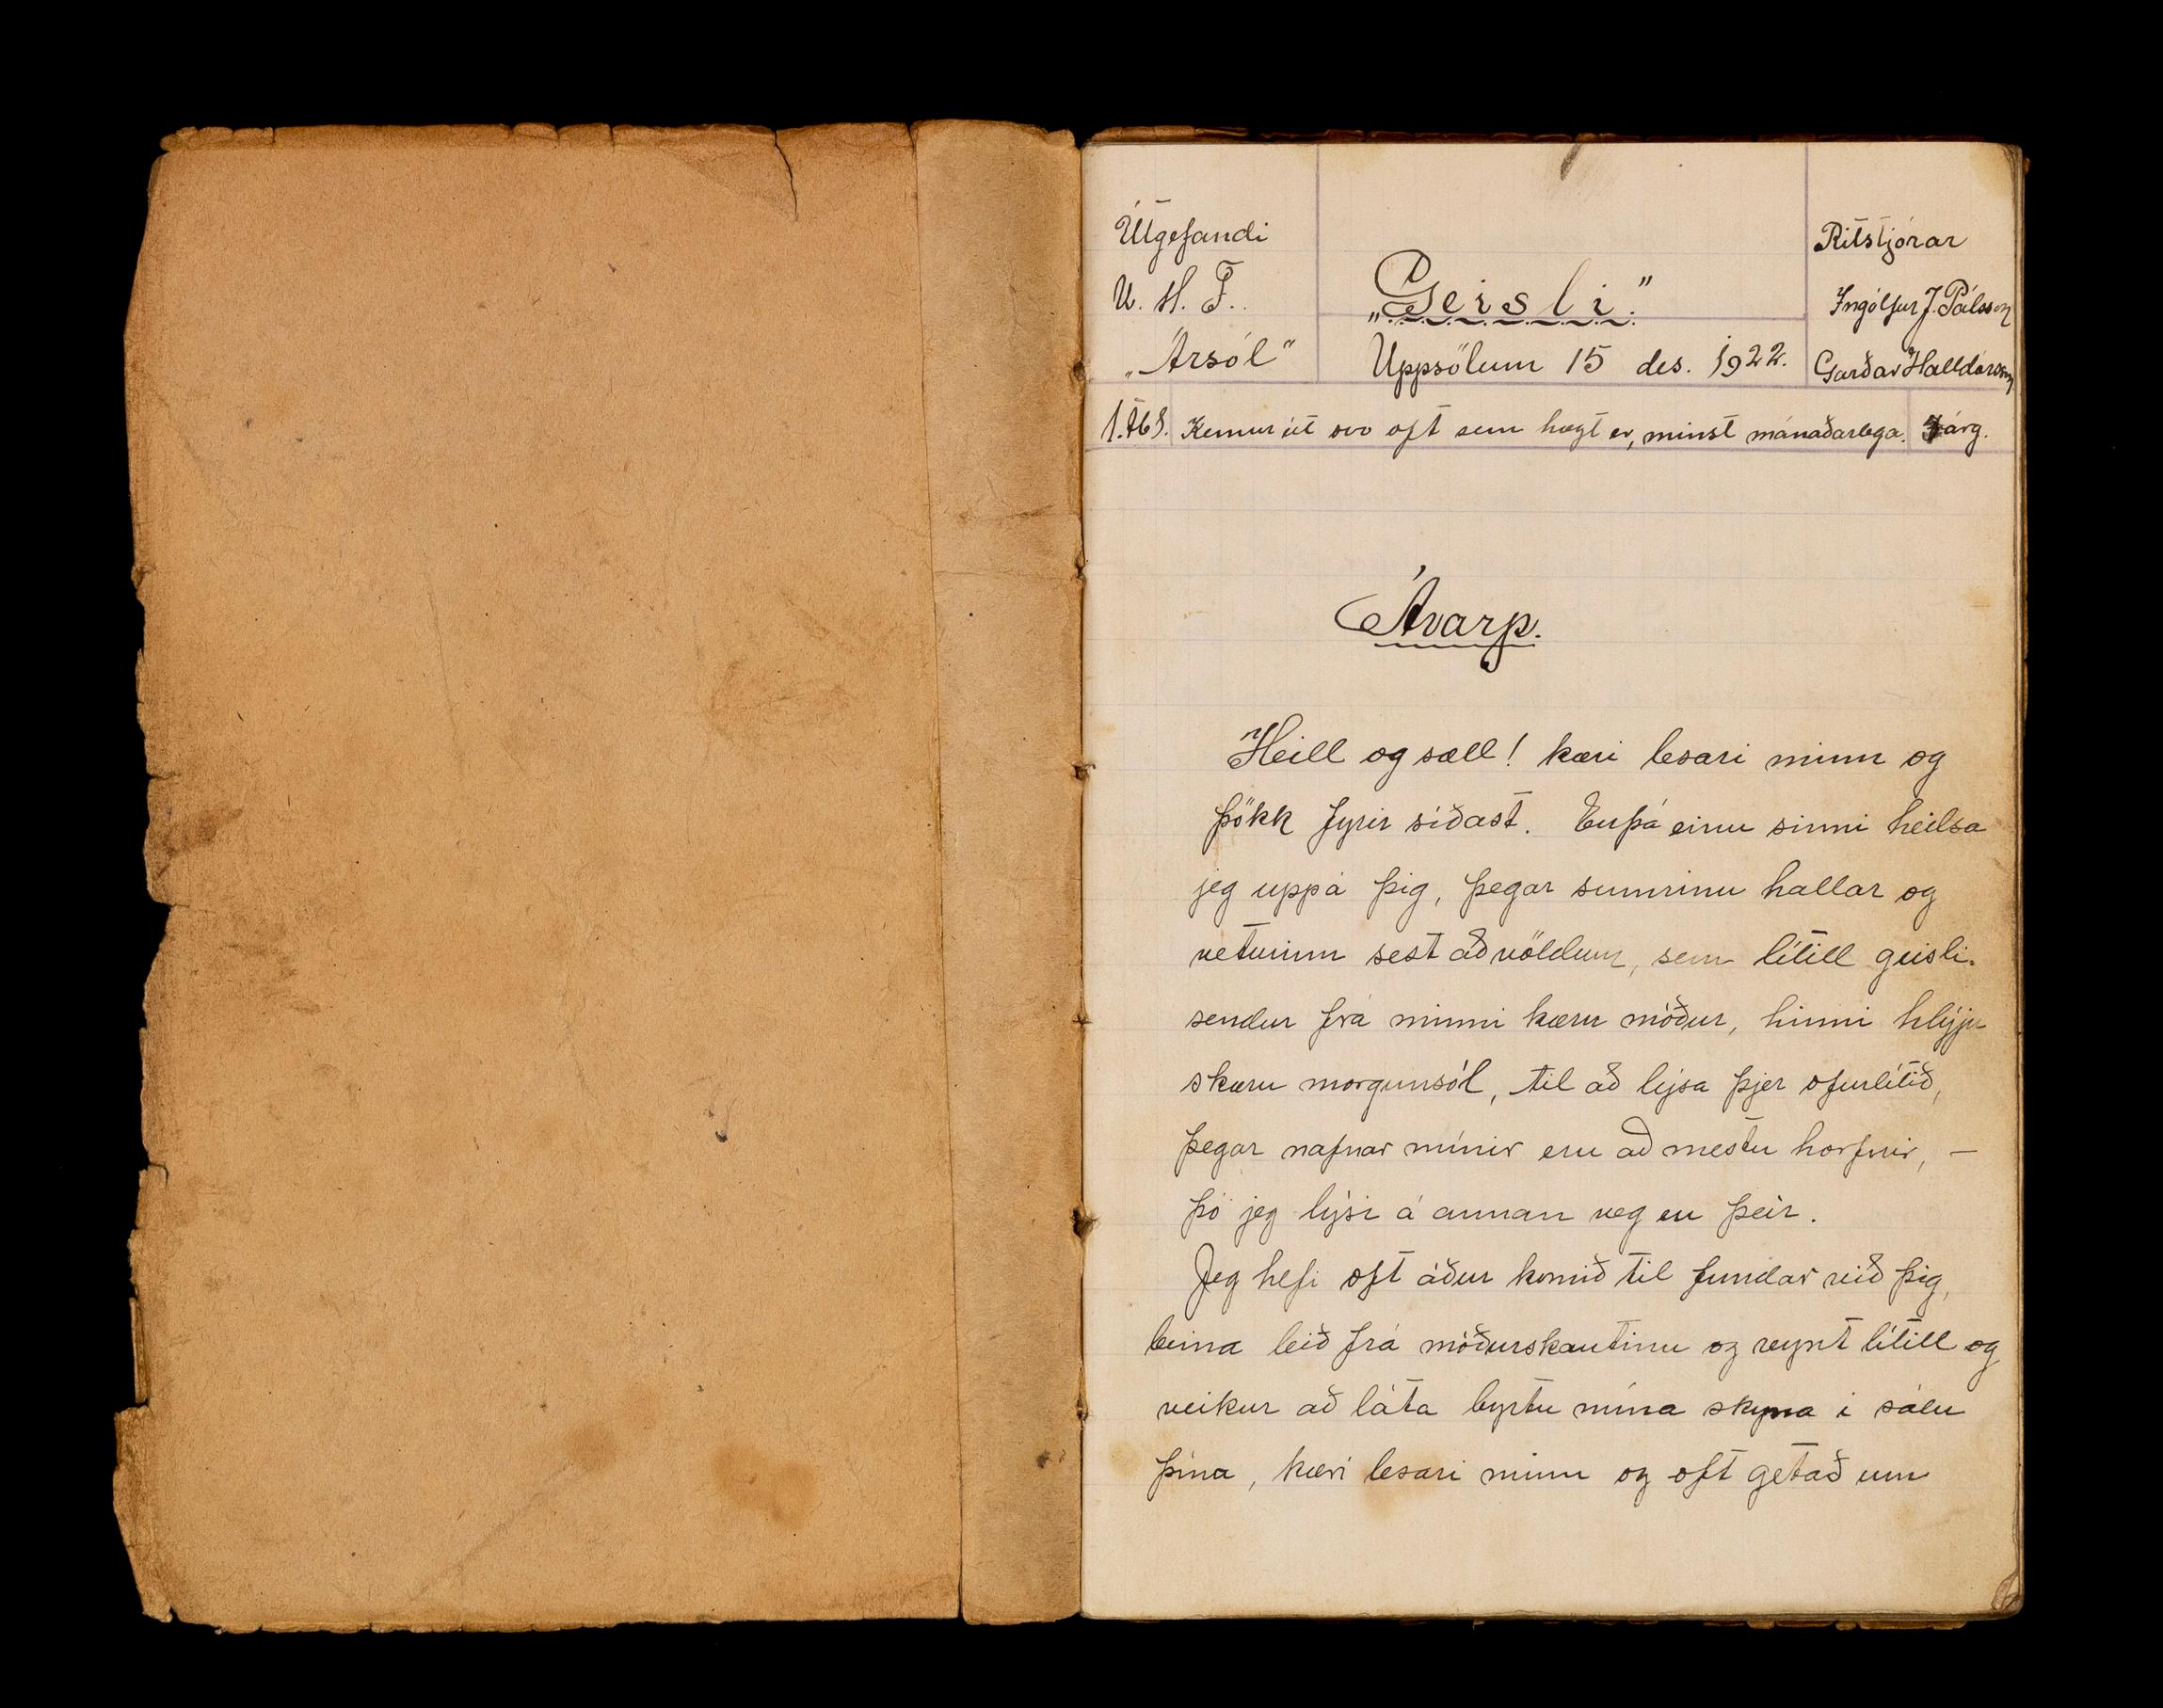 Útgefandi
U. M. F.
„Ársól“
„Geisli.“
Uppsölum 15 des. 1922.
Ritstjórar
Ingólfur J. Pálsson
Garðar Halldórsson
1. tbl. Kemur út svo oft sem hægt er, minst mánaðarlega. árg.
Ávarp.
Heill og sæll! kæri lesari minn og
þökk fyrir síðast. Enþá einu sinni heilsa
jeg uppá þig, þegar sumrinu hallar og
veturinn sest að völdum, sem lítill geisli.
sendur frá minni kæru móður, hinni hlýju
skæru morgunsól, til að lýsa þjer ofurlítið,
þegar nafnar mínir eru að mestu horfnir, —
þó jeg lýsi á annan veg en þeir.
Jeg hefi oft áður komið til fundar við þig,
beina leið frá móðurskautinu og reynt lítill og
veikur að láta byrtu mína skyna i sálu
þína, kæri lesari minn og oft getað um